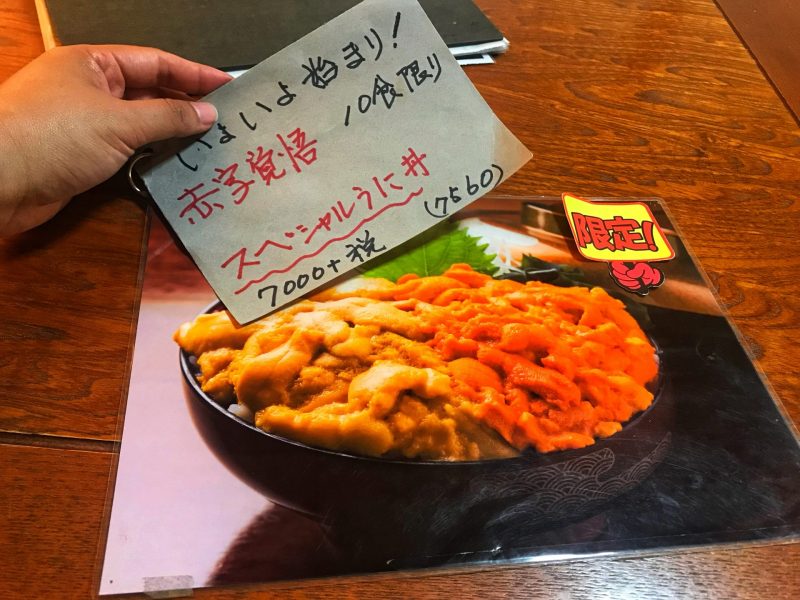 いよいよ始まり!
10食限り
赤字覚悟
スペシャルうに丼
7000+税
(7560)
限定!